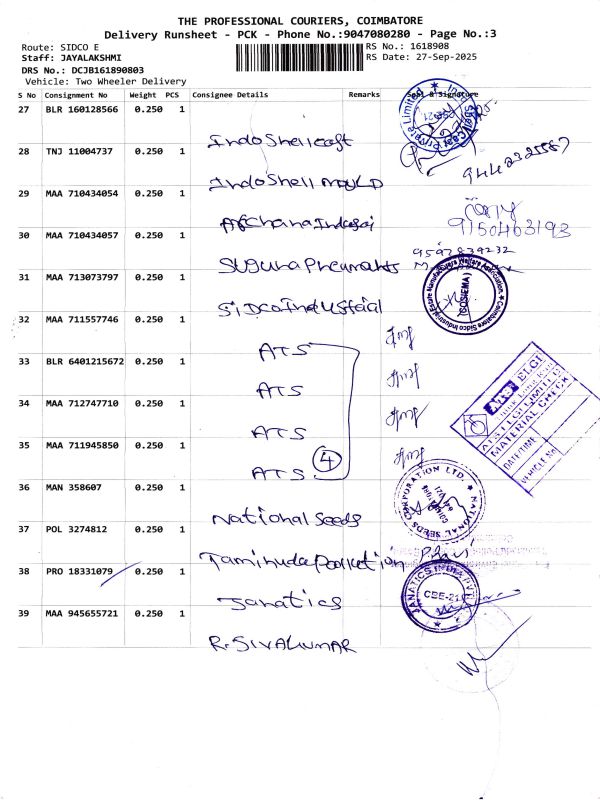 THE PROFESSIONAL COURIERS, COIMBATORE
Delivery Runsheet - PCK - Phone No.:9047080280 - Page No.:3
Route: SIDCO E
RS No.: 1618908
Staff: JAYALAKSHMI
RS Date: 27-Sep-2025
DRS No.: DCJB161890803
Vehicle: Two Wheeler Delivery
S No Consignment No Weight PCS Consignee Details Remarks Seal & Signature
27 BLR 160128566 0.250 1
IndoShell cast
28 TNJ 11004737 0.250 1
IndoShell Mould
9442325587
29 MAA 710434054 0.250 1
9150463193
30 MAA 710434057 0.250 1
Suguna Pneumatits
9597839232
31 MAA 713073797 0.250 1
SIDCO Industrial
Coimbatore Sidco Industrial Estate Manufacturers Welfare Association
(COSIEMA)
32 MAA 711557746 0.250 1
ATS
33 BLR 6401215672 0.250 1
ATS
34 MAA 712747710 0.250 1
ATS
35 MAA 711945850 0.250 1
ATS
4
ELGI
ATS ELGI LIMITED
MATERIAL CHECK
DATE/TIME
VEHICLE No
36 MAN 358607 0.250 1
National Seeds
NATIONAL SEEDS CORPORATION LTD.
37 POL 3274812 0.250 1
38 PRO 18331079 0.250 1
Janatics
JANATICS INDIA PVT
CBE-21
39 MAA 945655721 0.250 1
R. SIVAKUMAR